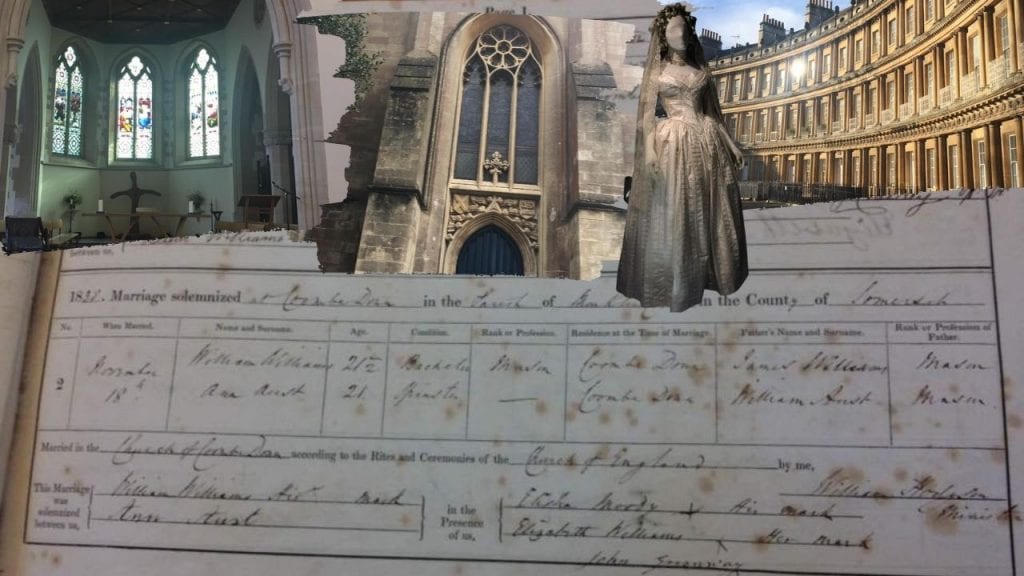 Page 1
1838. Marriage solemnized at Coombe Down in the Parish of Monkton in the County of Somerset
No. When Married. Name and Surname. Age. Condition. Rank or Profession. Residence at the Time of Marriage. Father's Name and Surname. Rank or Profession of Father.
2 November 18th William Williams 21 Bachelor Mason Coombe Down James Williams Mason
Ann Aust 21 Spinster — Coombe Down William Aust Mason
Married in the Church of Coombe Down according to the Rites and Ceremonies of the Church of England by me,
William Minister
This Marriage was solemnized between us, William Williams His mark
Ann Aust
in the Presence of us, Elisha Moody x His mark
Elizabeth Williams x Her mark
John Greenway